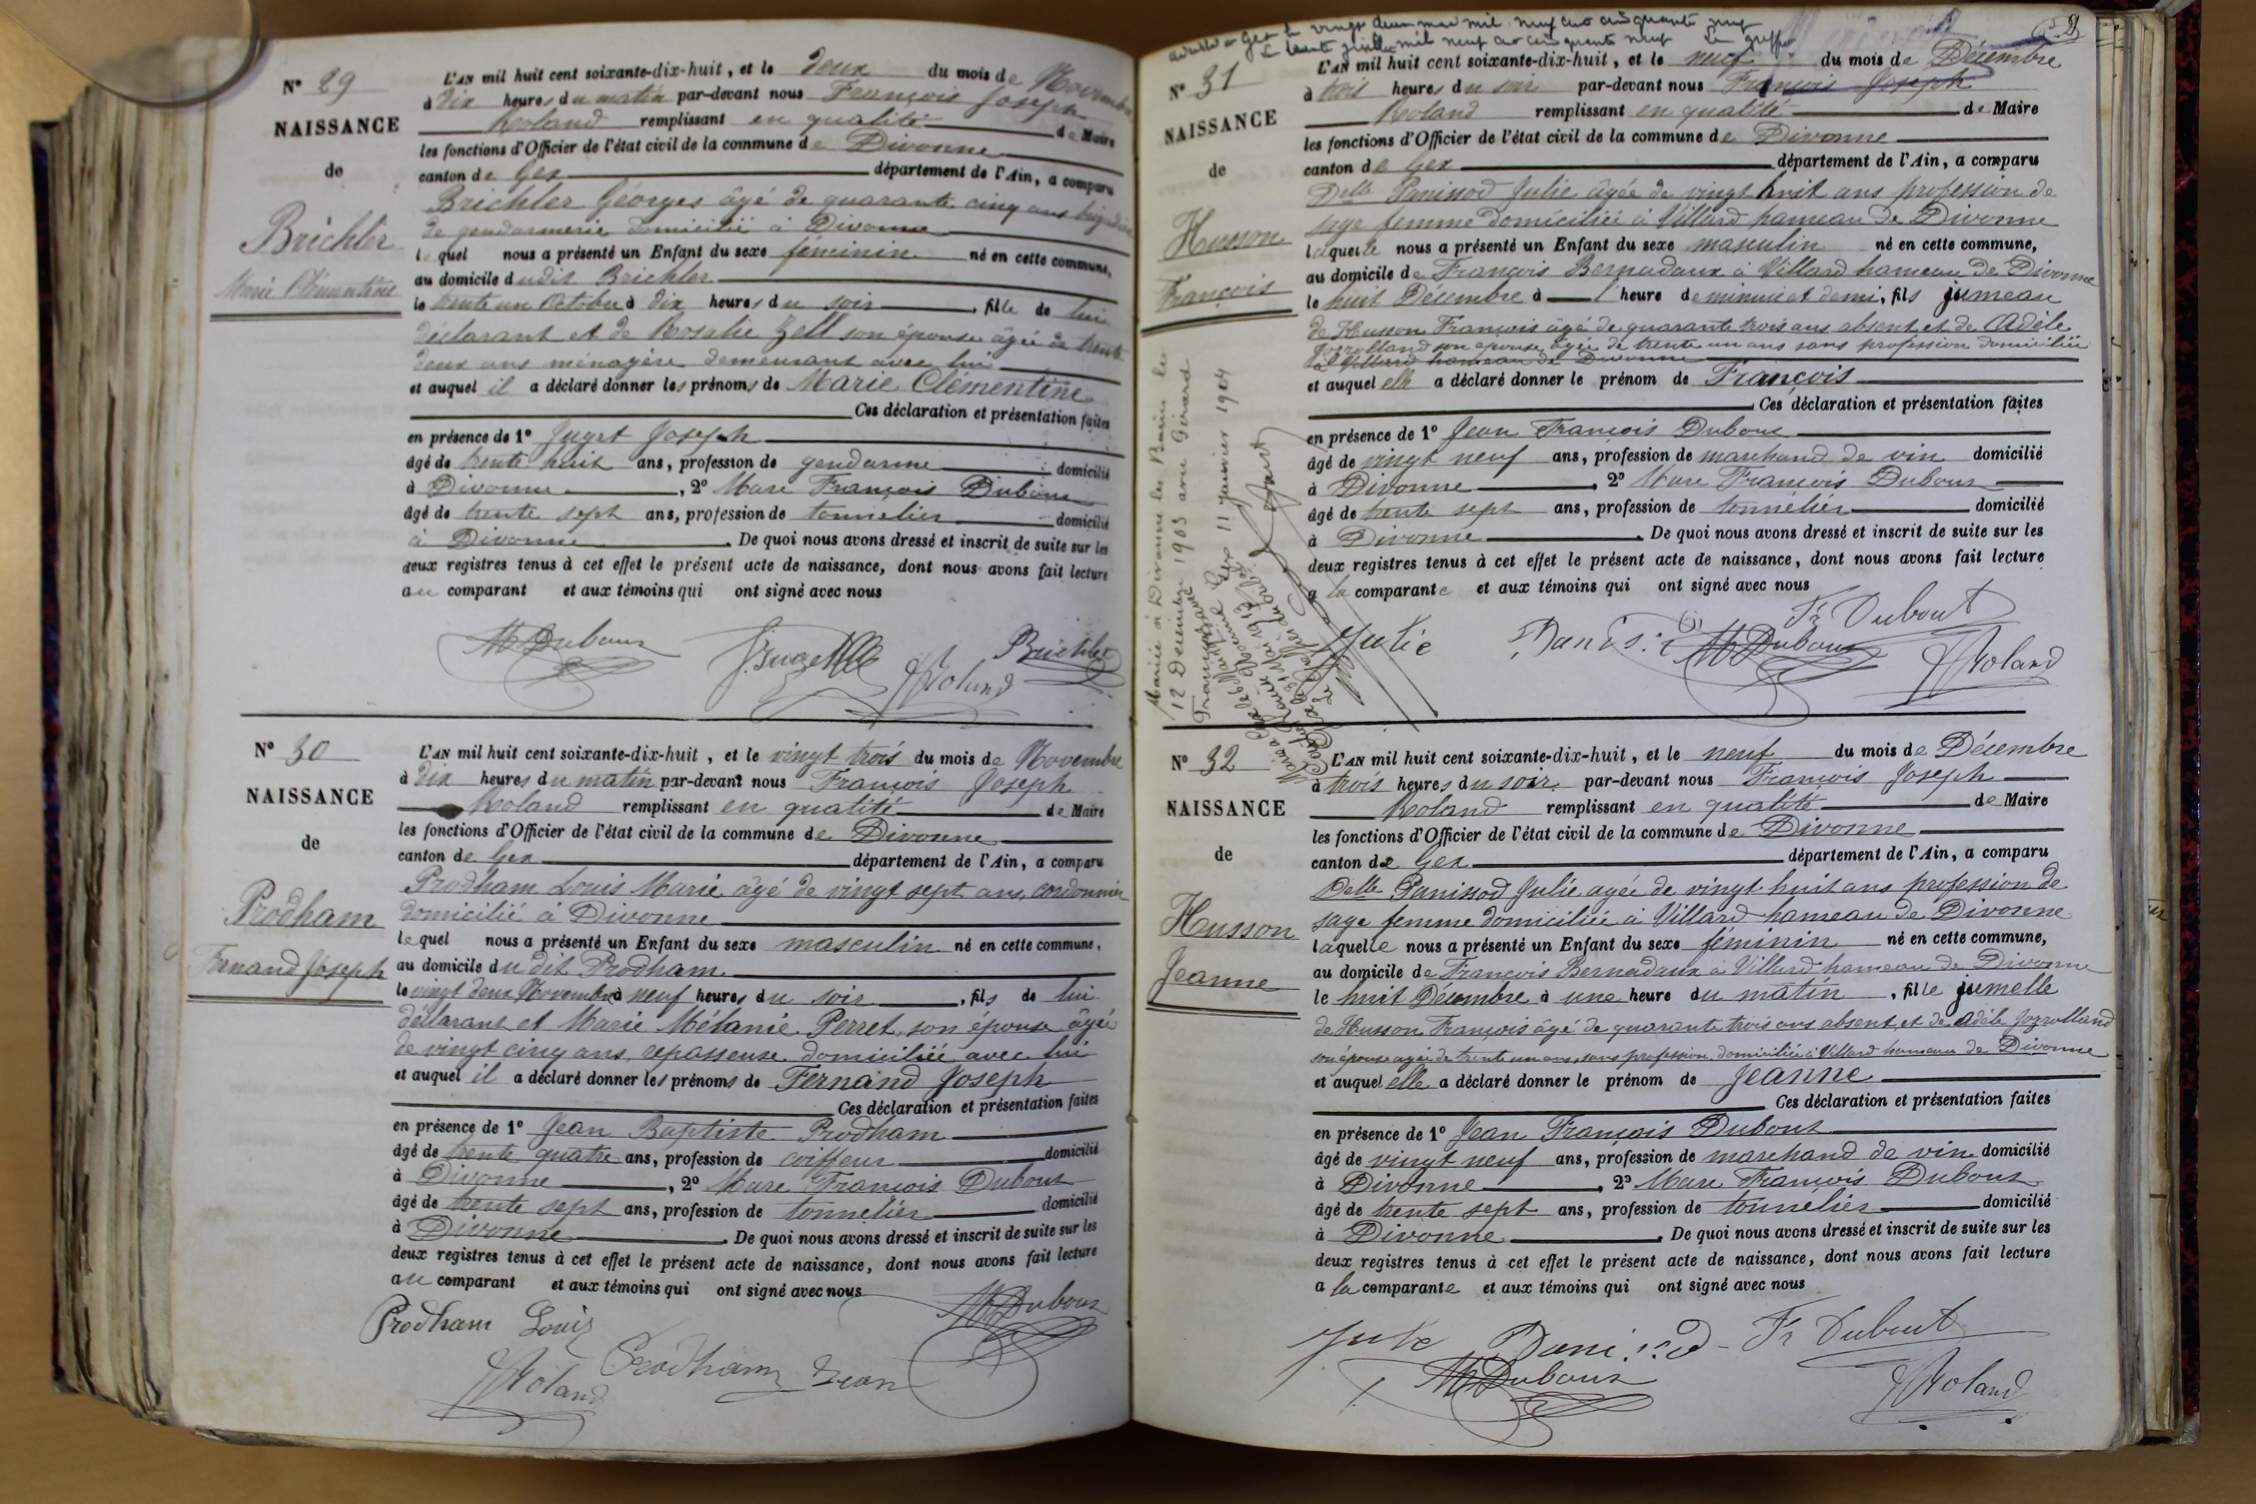 N° 29
NAISSANCE
de
Brichler
Marie Clémentine
L'AN mil huit cent soixante-dix-huit, et le deux du mois de Novembre
à dix heures du matin par-devant nous François Joseph
Roland remplissant en qualité de Maire
les fonctions d'Officier de l'état civil de la commune de Divonne
canton de Gex département de l'Ain, a comparu
Brichler Géorges âgé de quarante cinq ans brigadier
de gendarmerie domicilié à Divonne
lequel nous a présenté un Enfant du sexe féminin né en cette commune,
au domicile dudit Brichler
le trente un Octobre à dix heures du soir, fille de lui
déclarant et de Rosalie Zell son épouse âgée de trente
deux ans ménagère demeurant avec lui
et auquel il a déclaré donner les prénoms de Marie Clémentine
Ces déclaration et présentation faites
en présence de 1° Juget Joseph
âgé de trente huit ans, profession de gendarme domicilié
à Divonne, 2° Marc François Dubout
âgé de trente sept ans, profession de tonnelier domicilié
à Divonne. De quoi nous avons dressé et inscrit de suite sur les
deux registres tenus à cet effet le présent acte de naissance, dont nous avons fait lecture
au comparant et aux témoins qui ont signé avec nous
M Dubout J. Juget Roland Brichler
N° 30
NAISSANCE
de
Prodham
Fernand Joseph
L'AN mil huit cent soixante-dix-huit, et le vingt trois du mois de Novembre
à dix heures du matin par-devant nous François Joseph
Roland remplissant en qualité de Maire
les fonctions d'Officier de l'état civil de la commune de Divonne
canton de Gex département de l'Ain, a comparu
Prodham Louis Marie âgé de vingt sept ans, cordonnier
domicilié à Divonne
lequel nous a présenté un Enfant du sexe masculin né en cette commune,
au domicile du dit Prodham
le vingt deux Novembre à neuf heures du soir, fils de lui
déclarant et Marie Mélanie Perret, son épouse âgée
de vingt cinq ans, repasseuse domiciliée avec lui
et auquel il a déclaré donner les prénoms de Fernand Joseph
Ces déclaration et présentation faites
en présence de 1° Jean Baptiste Prodham
âgé de trente quatre ans, profession de coiffeur domicilié
à Divonne, 2° Marc François Dubout
âgé de trente sept ans, profession de tonnelier domicilié
à Divonne. De quoi nous avons dressé et inscrit de suite sur les
deux registres tenus à cet effet le présent acte de naissance, dont nous avons fait lecture
au comparant et aux témoins qui ont signé avec nous
M Dubout
Prodham Louis
Roland Prodham Jean
Gex le vingt deux mai mil neuf cent cinquante neuf
Le trente juillet mil neuf cent cinquante neuf Le greffier
N° 31
NAISSANCE
de
Husson
François
Marié à Divonne les Bains les
12 Décembre 1903 avec Gérard
Gex 11 janvier 1904
L'AN mil huit cent soixante-dix-huit, et le neuf du mois de Décembre
à trois heures du soir par-devant nous François Joseph
Roland remplissant en qualité de Maire
les fonctions d'Officier de l'état civil de la commune de Divonne
canton de Gex département de l'Ain, a comparu
Delle Panissod Julie âgée de vingt huit ans profession de
sage femme domiciliée à Villard hameau de Divonne
laquelle nous a présenté un Enfant du sexe masculin né en cette commune,
au domicile de François Bernadaux à Villard hameau de Divonne
le huit Décembre à l'heure de minuit et demi, fils jumeau
de Husson François âgé de quarante trois ans absent et de Adèle
Jozrolland son épouse, âgée de trente un ans sans profession domiciliée
à Villard hameau de Divonne
et auquel elle a déclaré donner le prénom de François
Ces déclaration et présentation faites
en présence de 1° Jean François Dubout
âgé de vingt neuf ans, profession de marchand de vin domicilié
à Divonne, 2° Marc François Dubout
âgé de trente sept ans, profession de tonnélier domicilié
à Divonne. De quoi nous avons dressé et inscrit de suite sur les
deux registres tenus à cet effet le présent acte de naissance, dont nous avons fait lecture
a la comparante et aux témoins qui ont signé avec nous
Fr Dubout
Julie M Dubout Roland
N° 32
NAISSANCE
de
Husson
Jeanne
L'AN mil huit cent soixante-dix-huit, et le neuf du mois de Décembre
à trois heures du soir par-devant nous François Joseph
Roland remplissant en qualité de Maire
les fonctions d'Officier de l'état civil de la commune de Divonne
canton de Gex département de l'Ain, a comparu
Delle Panissod Julie agée de vingt huit ans profession de
sage femme domiciliée à Villard hameau de Divonne
laquelle nous a présenté un Enfant du sexe féminin né en cette commune,
au domicile de François Bernadaux à Villard hameau de Divonne
le huit Décembre à une heure du matin, fille jumelle
de Husson François âgé de quarante trois ans absent et de Adèle Jozrolland
son épouse agée de trente un ans, sans profession, domiciliée à Villard hameau de Divonne
et auquel elle a déclaré donner le prénom de Jeanne
Ces déclaration et présentation faites
en présence de 1° Jean François Dubout
âgé de vingt neuf ans, profession de marchand de vin domicilié
à Divonne, 2° Marc François Dubout
âgé de trente sept ans, profession de tonnélier domicilié
à Divonne. De quoi nous avons dressé et inscrit de suite sur les
deux registres tenus à cet effet le présent acte de naissance, dont nous avons fait lecture
a la comparante et aux témoins qui ont signé avec nous
Julie Panissod Fr Dubout
M Dubout Roland